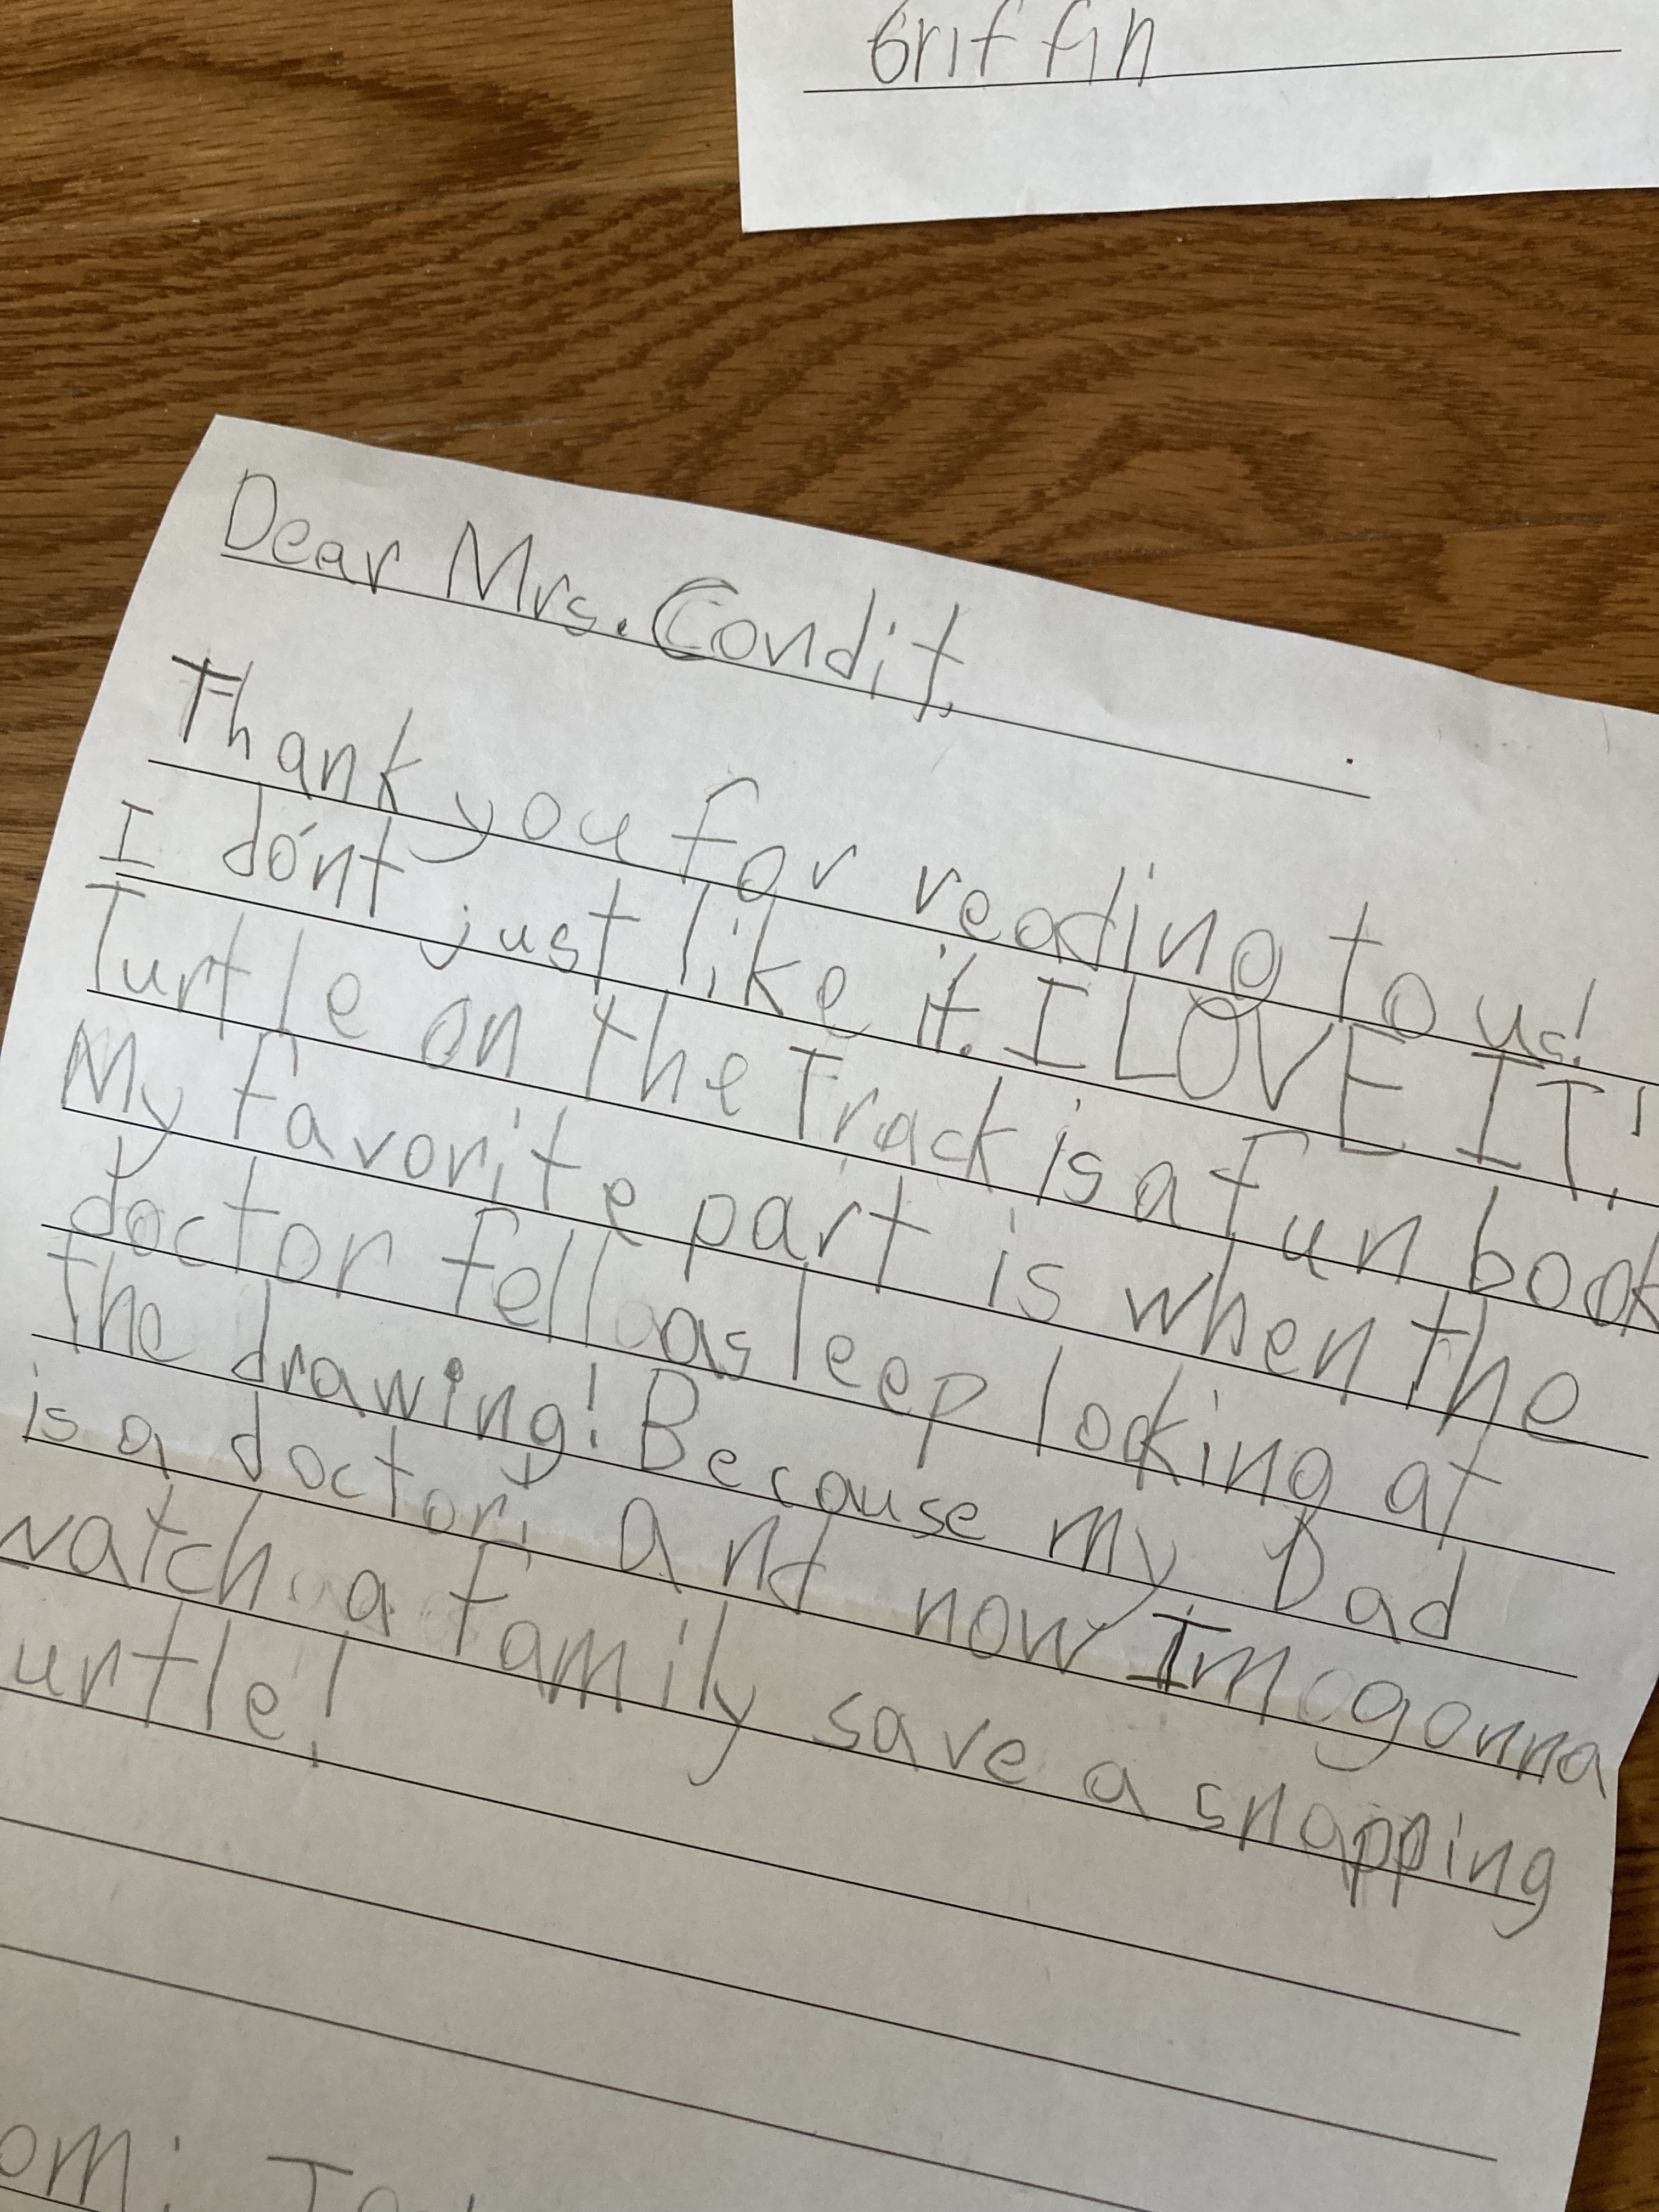 Griffin
Dear Mrs. Condit,
Thank you for reading to us!
I don't just like it. I LOVE IT!
Turtle on the Track is a fun book
My favorite part is when the
doctor fell asleep looking at
the drawing! Because my Dad
is a doctor! And now Im gonna
watch a family save a snapping
urtle!
om: